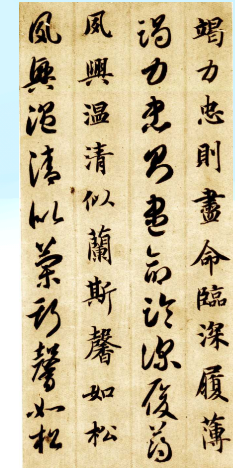 竭力忠則盡命臨深履薄
竭力忠則盡命臨深履薄
夙興温凊似蘭斯馨如松
夙興温凊似蘭斯馨如松